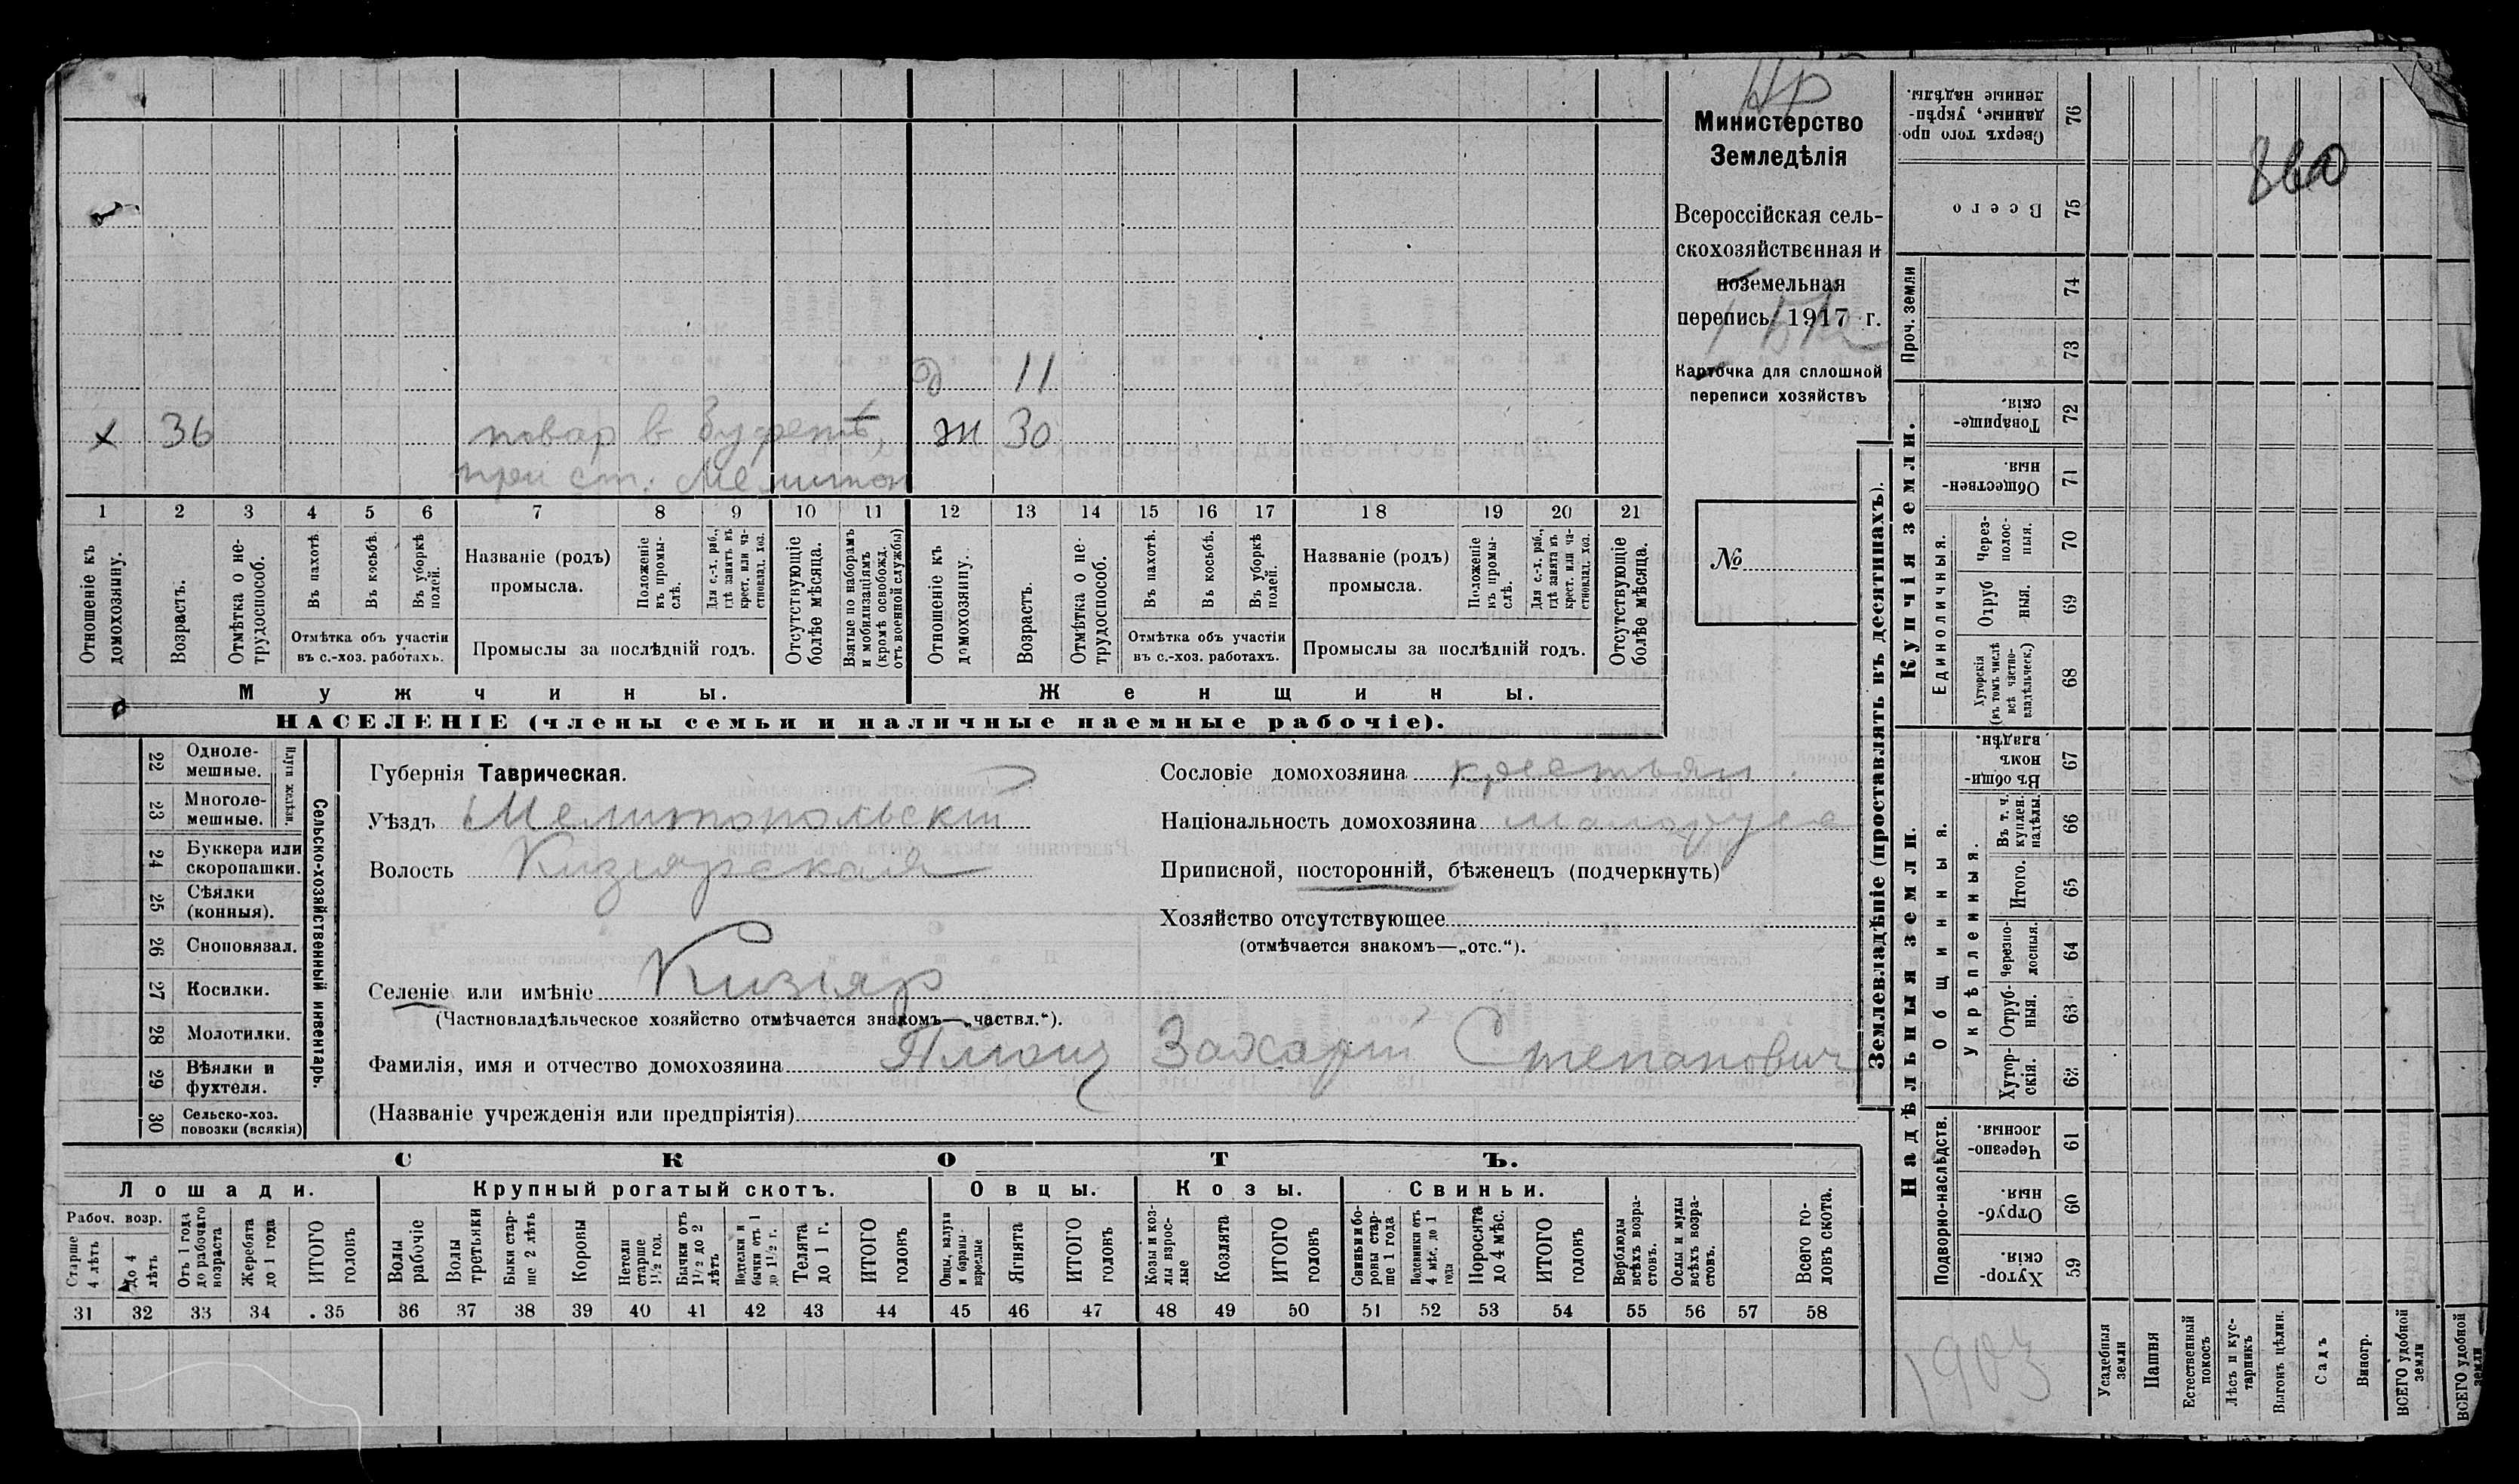 Нр
Министерство
Земледѣлія
Всероссійская сель-
скохозяйственная и
поземельная
перепись 1917 г.
Карточка для сплошной
переписи хозяйствъ
№
860
д 11
х 36 повар в буфетѣ, ж 30
при ст. Мелитоп
1 2 3 4 5 6 7 8 9 10 11 12 13 14 15 16 17 18 19 20 21
Отношеніе къ домохозяину.
Возрастъ.
Отмѣтка о не-трудоспособ.
Въ пахотѣ.
Въ косьбѣ.
Въ уборкѣ полей.
Отмѣтка объ участіи
въ с.-хоз. работахъ.
Названіе (родъ)
промысла.
Положеніе въ промы-слѣ.
Для с.-х. раб., гдѣ занятъ въ крест. или ча-стновлад. хоз.
Промыслы за послѣдній годъ.
Отсутствующіе болѣе мѣсяца.
Взятые по наборамъ и мобилизаціямъ (кромѣ освобожд. отъ военной службы)
Отношеніе къ домохозяину.
Возрастъ.
Отмѣтка о не-трудоспособ.
Въ пахотѣ.
Въ косьбѣ.
Въ уборкѣ полей.
Отмѣтка объ участіи
въ с.-хоз. работахъ.
Названіе (родъ)
промысла.
Положеніе въ промы-слѣ.
Для с.-х. раб., гдѣ занята въ крест. или ча-стновлад. хоз.
Промыслы за послѣдній годъ.
Отсутствующіе болѣе мѣсяца.
Мужчины.
Женщины.
НАСЕЛЕНІЕ (члены семьи и наличные наемные рабочіе).
22 Одноле-мешные.
23 Многоле-мешные.
Плуги желѣзн.
24 Буккера или скоропашки.
25 Сѣялки (конныя).
26 Сноповязал.
27 Косилки.
28 Молотилки.
29 Вѣялки и фухтеля.
30 Сельско-хоз. повозки (всякія)
Сельско-хозяйственный инвентарь.
Губернія Таврическая.
Уѣздъ Мелитопольскій
Волость Кизіярская
Селеніе или имѣніе Кизіяр
(Частновладѣльческое хозяйство отмѣчается знакомъ—„частвл.“).
Фамилія, имя и отчество домохозяина Плющ Захарій Степанович
(Названіе учрежденія или предпріятія)
Сословіе домохозяина крестьян.
Національность домохозяина малорусс
Приписной, посторонній, бѣженецъ (подчеркнуть)
Хозяйство отсутствующее
(отмѣчается знакомъ—„отс.“).
СКОТЪ.
Лошади. Крупный рогатый скотъ. Овцы. Козы. Свиньи.
Рабоч. возр.
Старше 4 лѣтъ
До 4 лѣтъ
Отъ 1 года до рабочаго возраста
Жеребята до 1 года
ИТОГО головъ
Волы рабочіе
Волы третьяки
Быки стар-ше 2 лѣтъ
Коровы
Нетели старше 1½ год.
Бычки отъ 1½ до 2 лѣтъ
Подтелки и бычки отъ 1 до 1½ г.
Телята до 1 г.
ИТОГО головъ
Овцы, валухи и бараны-взрослые
Ягнята
ИТОГО головъ
Козы и коз-лы взрос-лые
Козлята
ИТОГО головъ
Свиньи и бо-ровы стар-ше 1 года
Подсвинки отъ 4 мѣс. до 1 года
Поросята до 4 мѣс.
ИТОГО головъ
Верблюды всѣхъ возра-стовъ.
Ослы и мулы всѣхъ возра-стовъ.
Всего го-ловъ скота.
31 32 33 34 35 36 37 38 39 40 41 42 43 44 45 46 47 48 49 50 51 52 53 54 55 56 57 58
Землевладѣніе (проставлять въ десятинахъ).
Сверхъ того про-данные, укрѣп-ленные надѣлы. 76
Всего 75
Проч. земли 74
73
Купчія земли.
Товарище-скія. 72
Обществен-ныя. 71
Единоличныя.
Через-полос-ныя. 70
Отруб-ныя. 69
Хуторскія (въ томъ числѣ всѣ частно-владѣльческ.) 68
Надѣльныя земли.
Общинныя.
Въ общи-номъ владѣн. 67
Укрѣпленныя.
Въ т. ч. куплен. надѣлы. 66
Итого. 65
Черезпо-лосныя. 64
Отруб-ныя. 63
Хутор-скія. 62
Подворно-наслѣдств.
Черезпо-лосныя. 61
Отруб-ныя. 60
Хутор-скія. 59
Усадебныя земли
Пашня
Естественный покосъ
Лѣсъ и кус-тарникъ
Выгонъ цѣлин.
Садъ
Виногр.
ВСЕГО удобной земли
ВСЕГО удобной земли